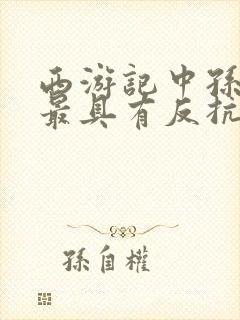 西游記中孫
最具有反抗
孫自權